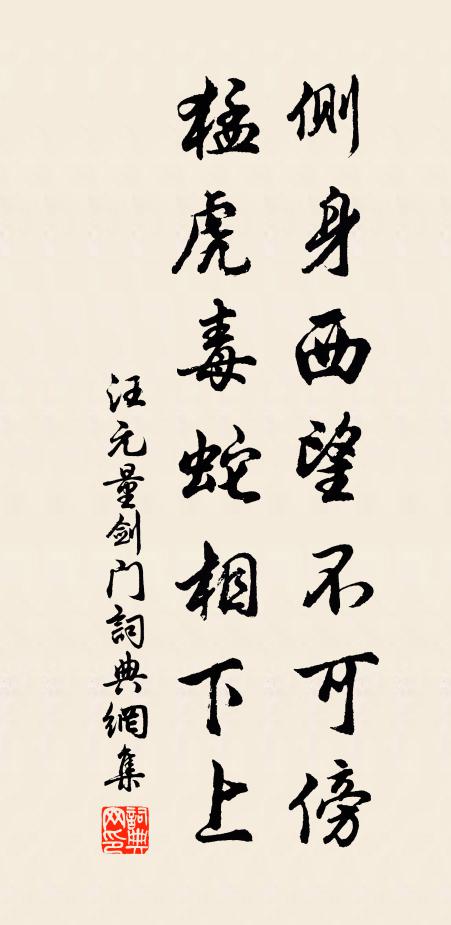 側身西望不可傍
猛虎毒蛇相下上
汪元量剑门詞典網集
詞典网印